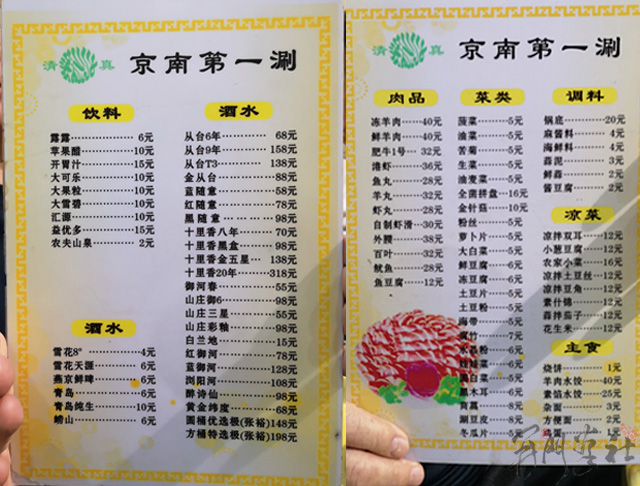 清真
京南第一涮
饮料
露露 6元
苹果醋 10元
开胃汁 15元
大可乐 10元
大果粒 10元
大雪碧 10元
汇源 10元
益优多 15元
农夫山泉 2元
酒水
雪花8° 4元
雪花天涯 6元
燕京鲜啤 6元
青岛 6元
青岛纯生 10元
崂山 6元
酒水
从台6年 68元
从台9年 158元
从台T3 138元
金从台 88元
蓝随意 58元
红随意 78元
黑随意 98元
十里香八年 70元
十里香黑盒 98元
十里香金五星 138元
十里香20年 318元
御河春 55元
山庄御6 98元
山庄三星 55元
山庄彩釉 98元
白兰地 15元
红御河 78元
蓝御河 128元
浏阳河 108元
醉诗仙 98元
黄金纬度 68元
圆桶优选极(张裕)148元
方桶特选极(张裕)198元
清真
京南第一涮
肉品
冻羊肉 40元
鲜羊肉 40元
肥牛1号 32元
港虾 36元
鱼丸 28元
羊丸 32元
虾丸 28元
自制虾滑 30元
外腰 38元
百叶 32元
鱿鱼 28元
鱼豆腐 12元
菜类
菠菜 5元
油菜 5元
苦菊 5元
生菜 5元
油麦菜 5元
全菌拼盘 16元
金针菇 10元
粉丝 5元
萝卜片 5元
大白菜 5元
鲜豆腐 6元
冻豆腐 6元
土豆片 5元
土豆粉 5元
海带 5元
腐竹 7元
水晶粉 6元
娃娃菜 6元
黑白菜 5元
黑木耳 6元
茼蒿 8元
涮豆皮 8元
冬瓜片 5元
调料
锅底 20元
麻酱料 4元
海鲜料 4元
蒜泥 3元
鲜蒜 2元
酱豆腐 2元
凉菜
凉拌双耳 12元
小葱豆腐 12元
农家小菜 16元
凉拌土豆丝 12元
凉拌豆角 12元
素什锦 12元
蒜拌茄子 12元
花生米 12元
主食
烧饼 1元
羊肉水饺 40元
素馅水饺 25元
杂面 3元
方便面 2元
鸡蛋 1元